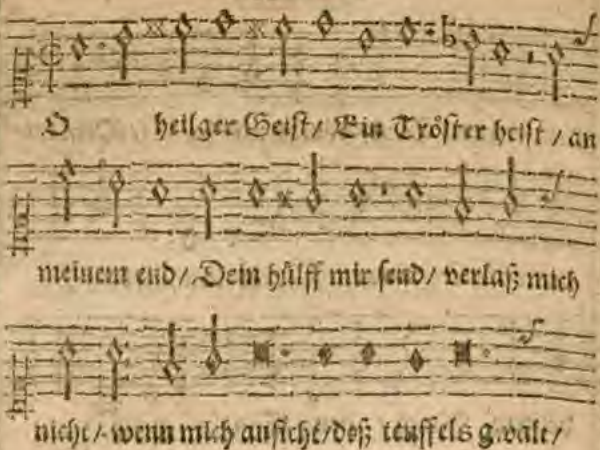 O heilger Geist/ Ein Tröster heist / an
meinem end/ Dein hülff mir send/ verlaß mich
nicht/ wenn mich anficht/ deß teuffels gwalt/